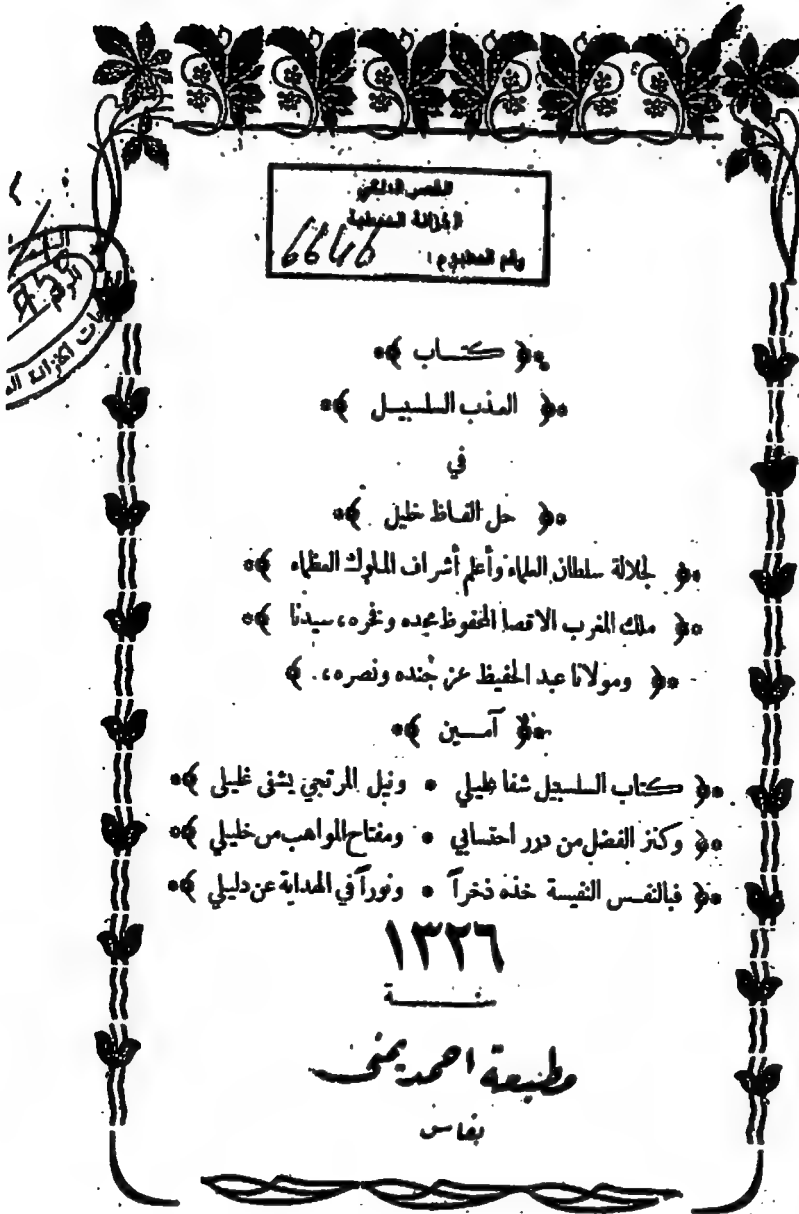 القصر الملكي
الخزانة
رقم المطبوع : 6646
الرقم
كتاب
العذب السلسبيل
في
حل الفاظ خليل
لجلالة سلطان العلماء وأعلم أشراف الملوك العظماء
ملك المغرب الاقصا المحفوظ مجده وفخره ، سيدنا
ومولانا عبد الحفيظ عز جنده ونصره ، .
آمـــين
كتاب السلسبيل شفا عليلي * ونيل المرتجي يشفى غليلى
وكنز الفضل من درر احتسابي * ومفتاح المواهب من خليلي
فبالنفس النفيسة خذه ذخراً * ونوراً في الهداية عن دليلي
١٣٢٦
سنـــــة
مطبعة احمد يمنى
بفاس